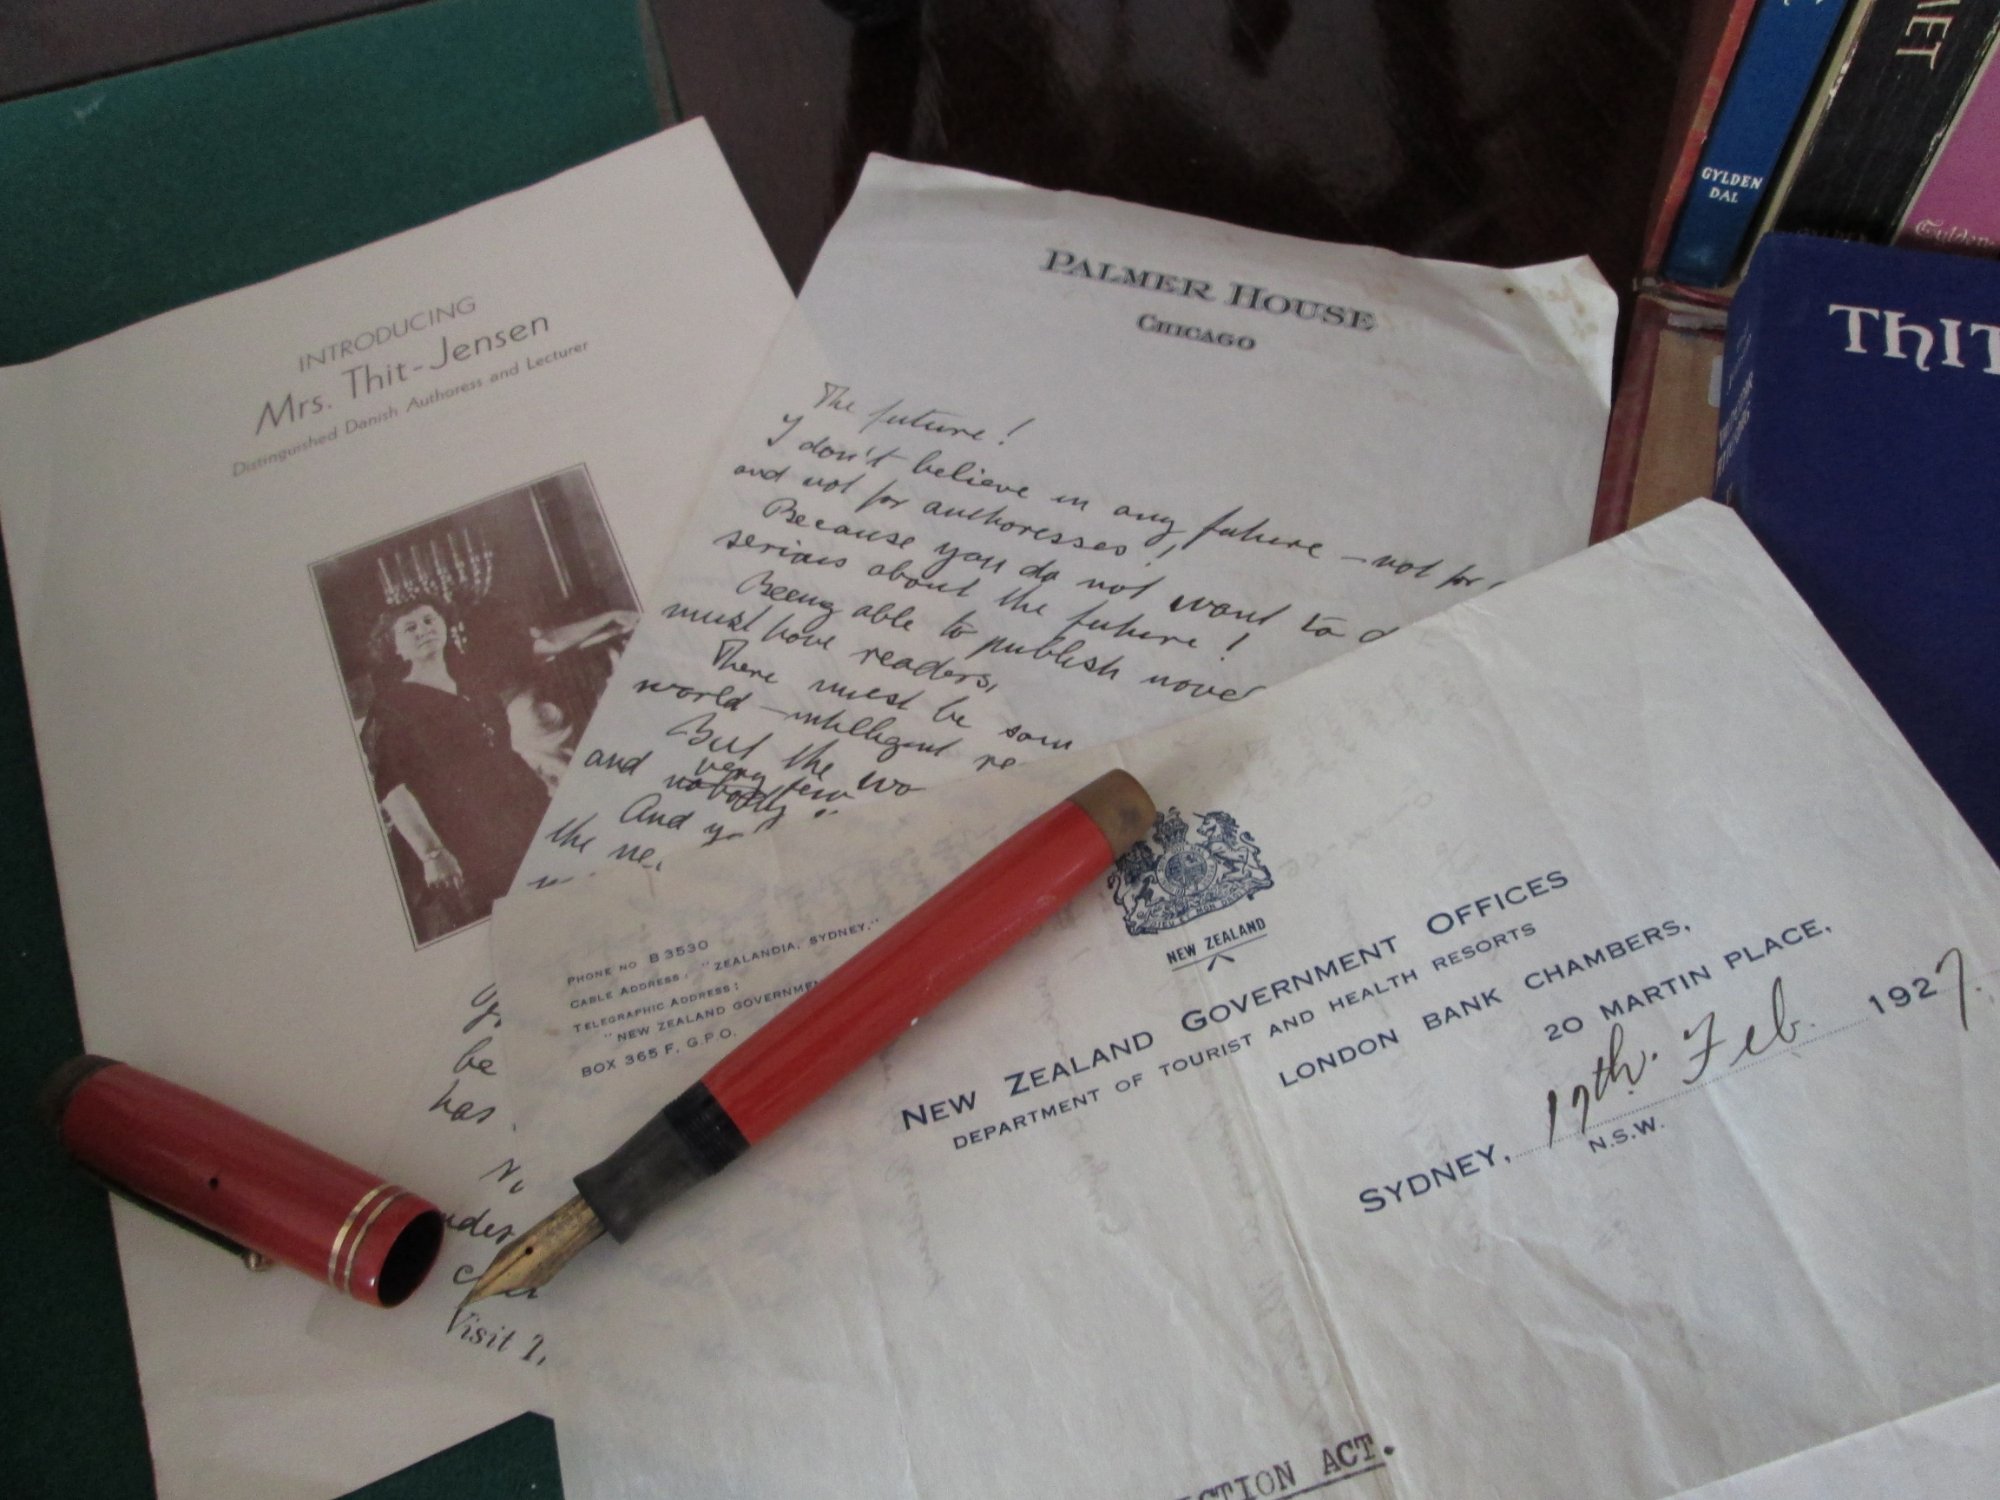 INTRODUCING
Mrs. Thit-Jensen
Distinguished Danish Authoress and Lecturer
PALMER HOUSE
CHICAGO
The future!
I don't believe in any future – not for
and not for authoresses!
Because you do not want to
serious about the future!
Beeing able to publish
must have readers,
There must be
world – intelligent
But the
and very few
nobody
And
the
be
has
Visit
PHONE NO B3530
CABLE ADDRESS, "ZEALANDIA, SYDNEY."
TELEGRAPHIC ADDRESS:
"NEW ZEALAND GOVERNMEN
BOX 365 F, G.P.O.
DIEU ET MON DROIT
NEW ZEALAND
NEW ZEALAND GOVERNMENT OFFICES
DEPARTMENT OF TOURIST AND HEALTH RESORTS
LONDON BANK CHAMBERS,
20 MARTIN PLACE,
SYDNEY, 17th. Feb. 1927.
N.S.W.
CTION ACT.
GYLDEN
DAL
MET
Gylden
THIT